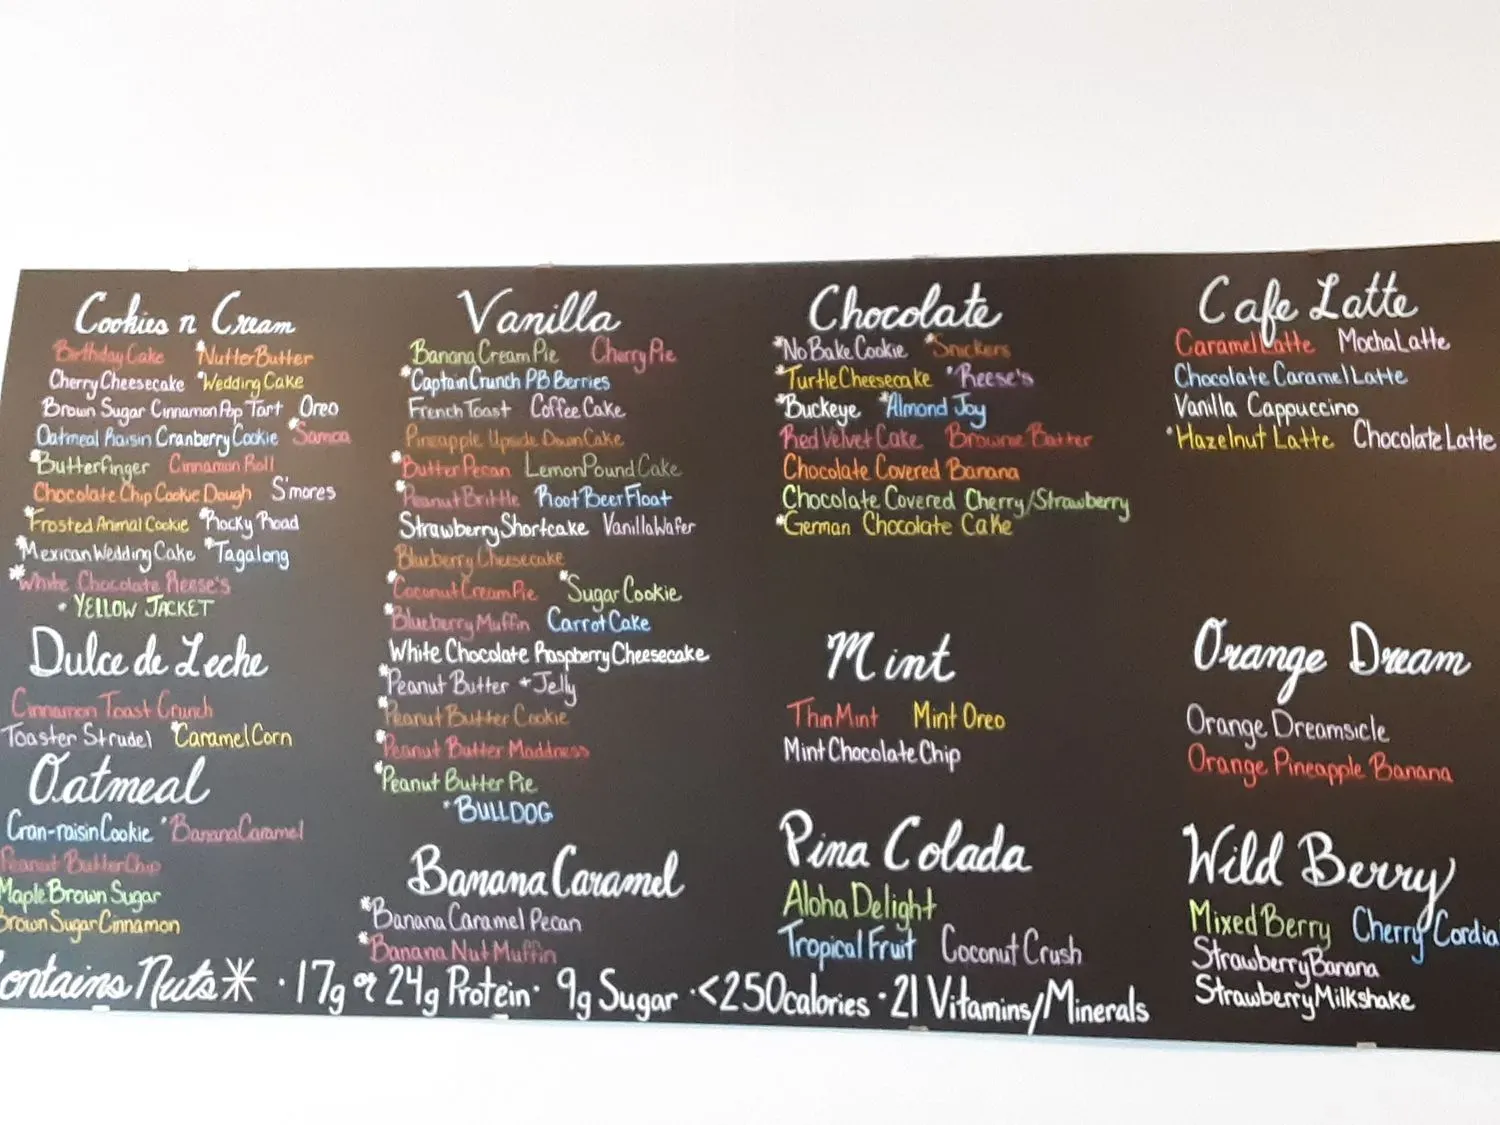 Cookies n Cream
Birthday Cake *Nutter Butter
Cherry Cheesecake *Wedding Cake
Brown Sugar Cinnamon Pop Tart Oreo
Oatmeal Raisin Cranberry Cookie *Samoa
*Butterfinger Cinnamon Roll
Chocolate Chip Cookie Dough S'mores
*Frosted Animal Cookie *Rocky Road
*Mexican Wedding Cake *Tagalong
*White Chocolate Reese's
*YELLOW JACKET
Dulce de Leche
Cinnamon Toast Crunch
Toaster Strudel *Caramel Corn
Oatmeal
Cran-raisin Cookie *Banana Caramel
Peanut Butter Chip
Maple Brown Sugar
Brown Sugar Cinnamon
Vanilla
Banana Cream Pie Cherry Pie
*Captain Crunch PB Berries
French Toast Coffee Cake
Pineapple Upside Down Cake
*Butter Pecan Lemon Pound Cake
*Peanut Brittle Root Beer Float
Strawberry Shortcake Vanilla Wafer
Blueberry Cheesecake
*Coconut Cream Pie *Sugar Cookie
*Blueberry Muffin Carrot Cake
White Chocolate Raspberry Cheesecake
*Peanut Butter + Jelly
*Peanut Butter Cookie
*Peanut Butter Maddness
*Peanut Butter Pie
*BULLDOG
Banana Caramel
*Banana Caramel Pecan
*Banana Nut Muffin
Chocolate
*No Bake Cookie *Snickers
*Turtle Cheesecake *Reese's
*Buckeye *Almond Joy
Red Velvet Cake Brownie Batter
Chocolate Covered Banana
Chocolate Covered Cherry/Strawberry
*German Chocolate Cake
Mint
Thin Mint Mint Oreo
Mint Chocolate Chip
Pina Colada
Aloha Delight
Tropical Fruit Coconut Crush
Cafe Latte
Caramel Latte Mocha Latte
Chocolate Caramel Latte
Vanilla Cappuccino
*Hazelnut Latte Chocolate Latte
Orange Dream
Orange Dreamsicle
Orange Pineapple Banana
Wild Berry
Mixed Berry Cherry Cordia
Strawberry Banana
Strawberry Milkshake
ontains Nuts* · 17g or 24g Protein · 9g Sugar · <250calories · 21 Vitamins/Minerals